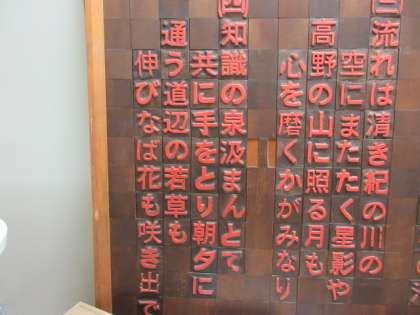 三流れは清き紀の川の
空にまたたく星影や
高野の山に照る月も
心を磨くかがみなり
四知識の泉汲まんとて
共に手をとり朝夕に
通う道辺の若草も
伸びなば花も咲き出で